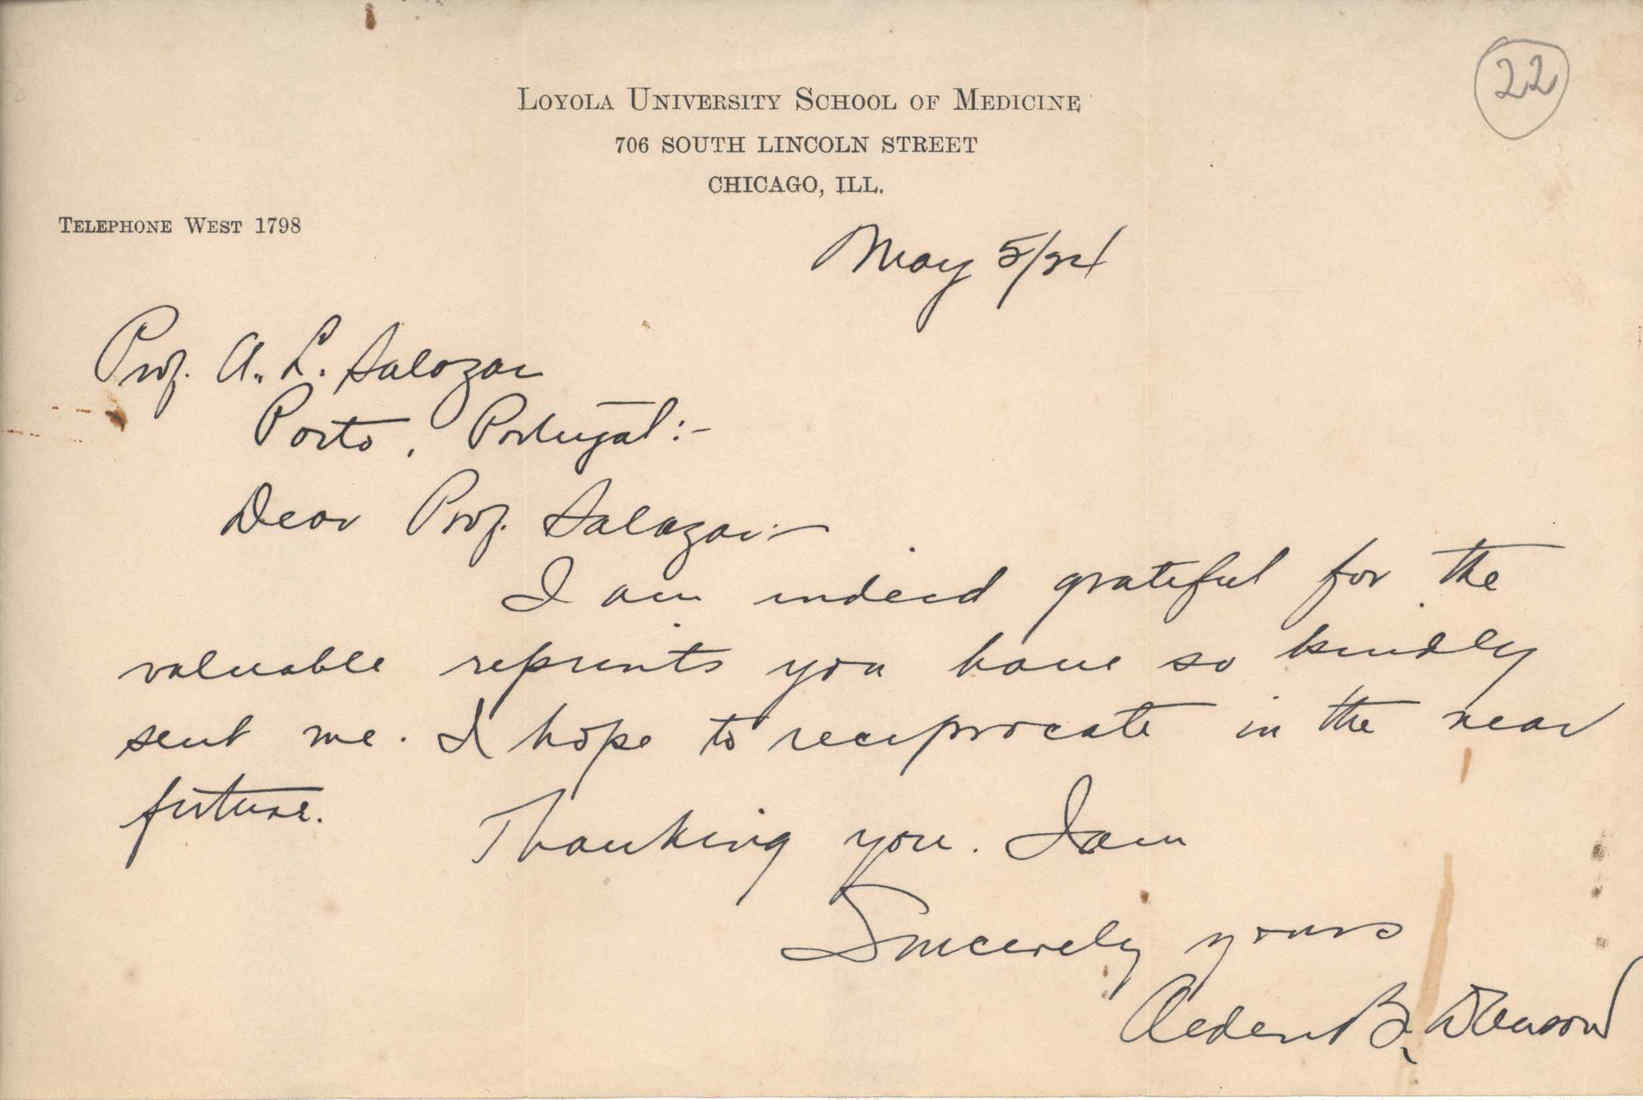 22
LOYOLA UNIVERSITY SCHOOL OF MEDICINE
706 SOUTH LINCOLN STREET
CHICAGO, ILL.
TELEPHONE WEST 1798
May 5/24
Prof. A. L. Salazar
Porto, Portugal:-
Dear Prof. Salazar:-
I am indeed grateful for the
valuable reprints you have so kindly
sent me. I hope to reciprocate in the near
future.
Thanking you. I am
Sincerely yours
B.